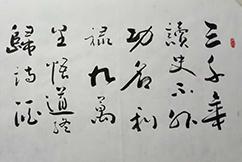 三千年
讀史不外
功名利
祿九萬
里悟道終
歸詩酒